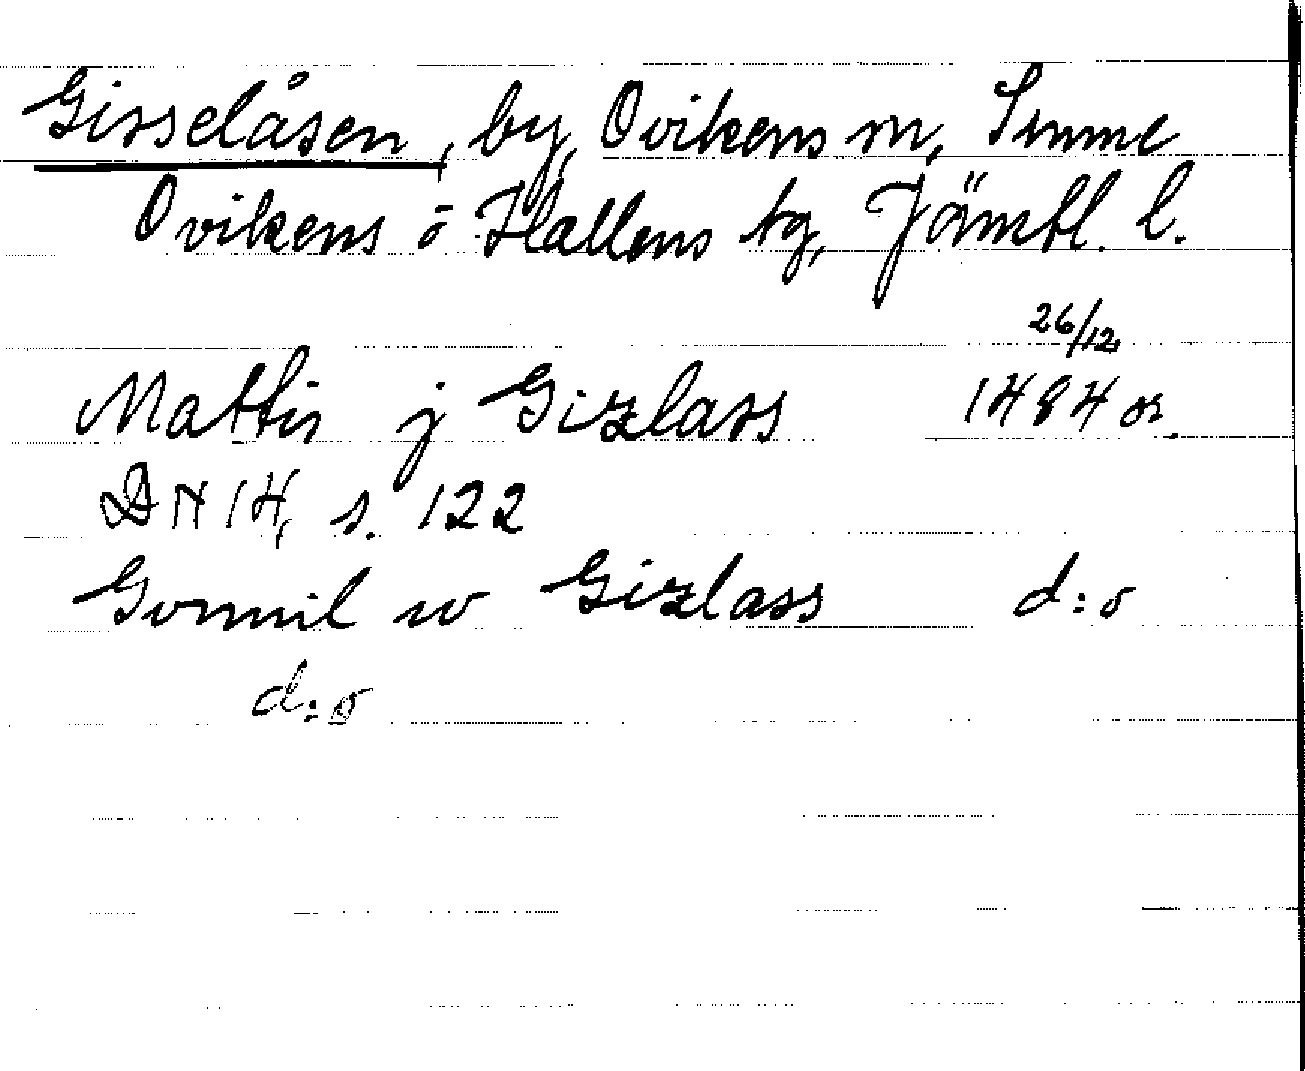 Gisselåsen, by, Ovikens sn, Sunne
Ovikens o Hallens tg, Jämtl. l.
26/12
Mattis j Gizlass 1484 or.
DN 14, s. 122
Gvnnil w Gizlass d:o
d:o